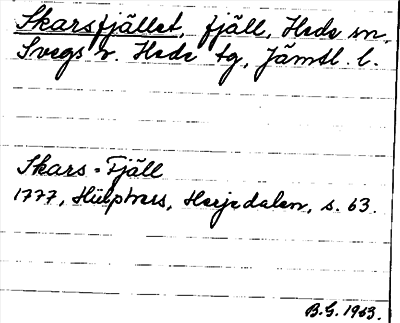 Skarsfjället, fjäll, Hede sn,
Svegs r. Hede tg, Jämtl. l.
Skars-Fjäll
1777, Hülphers, Herjedalen, s. 63.
B.G. 1963.